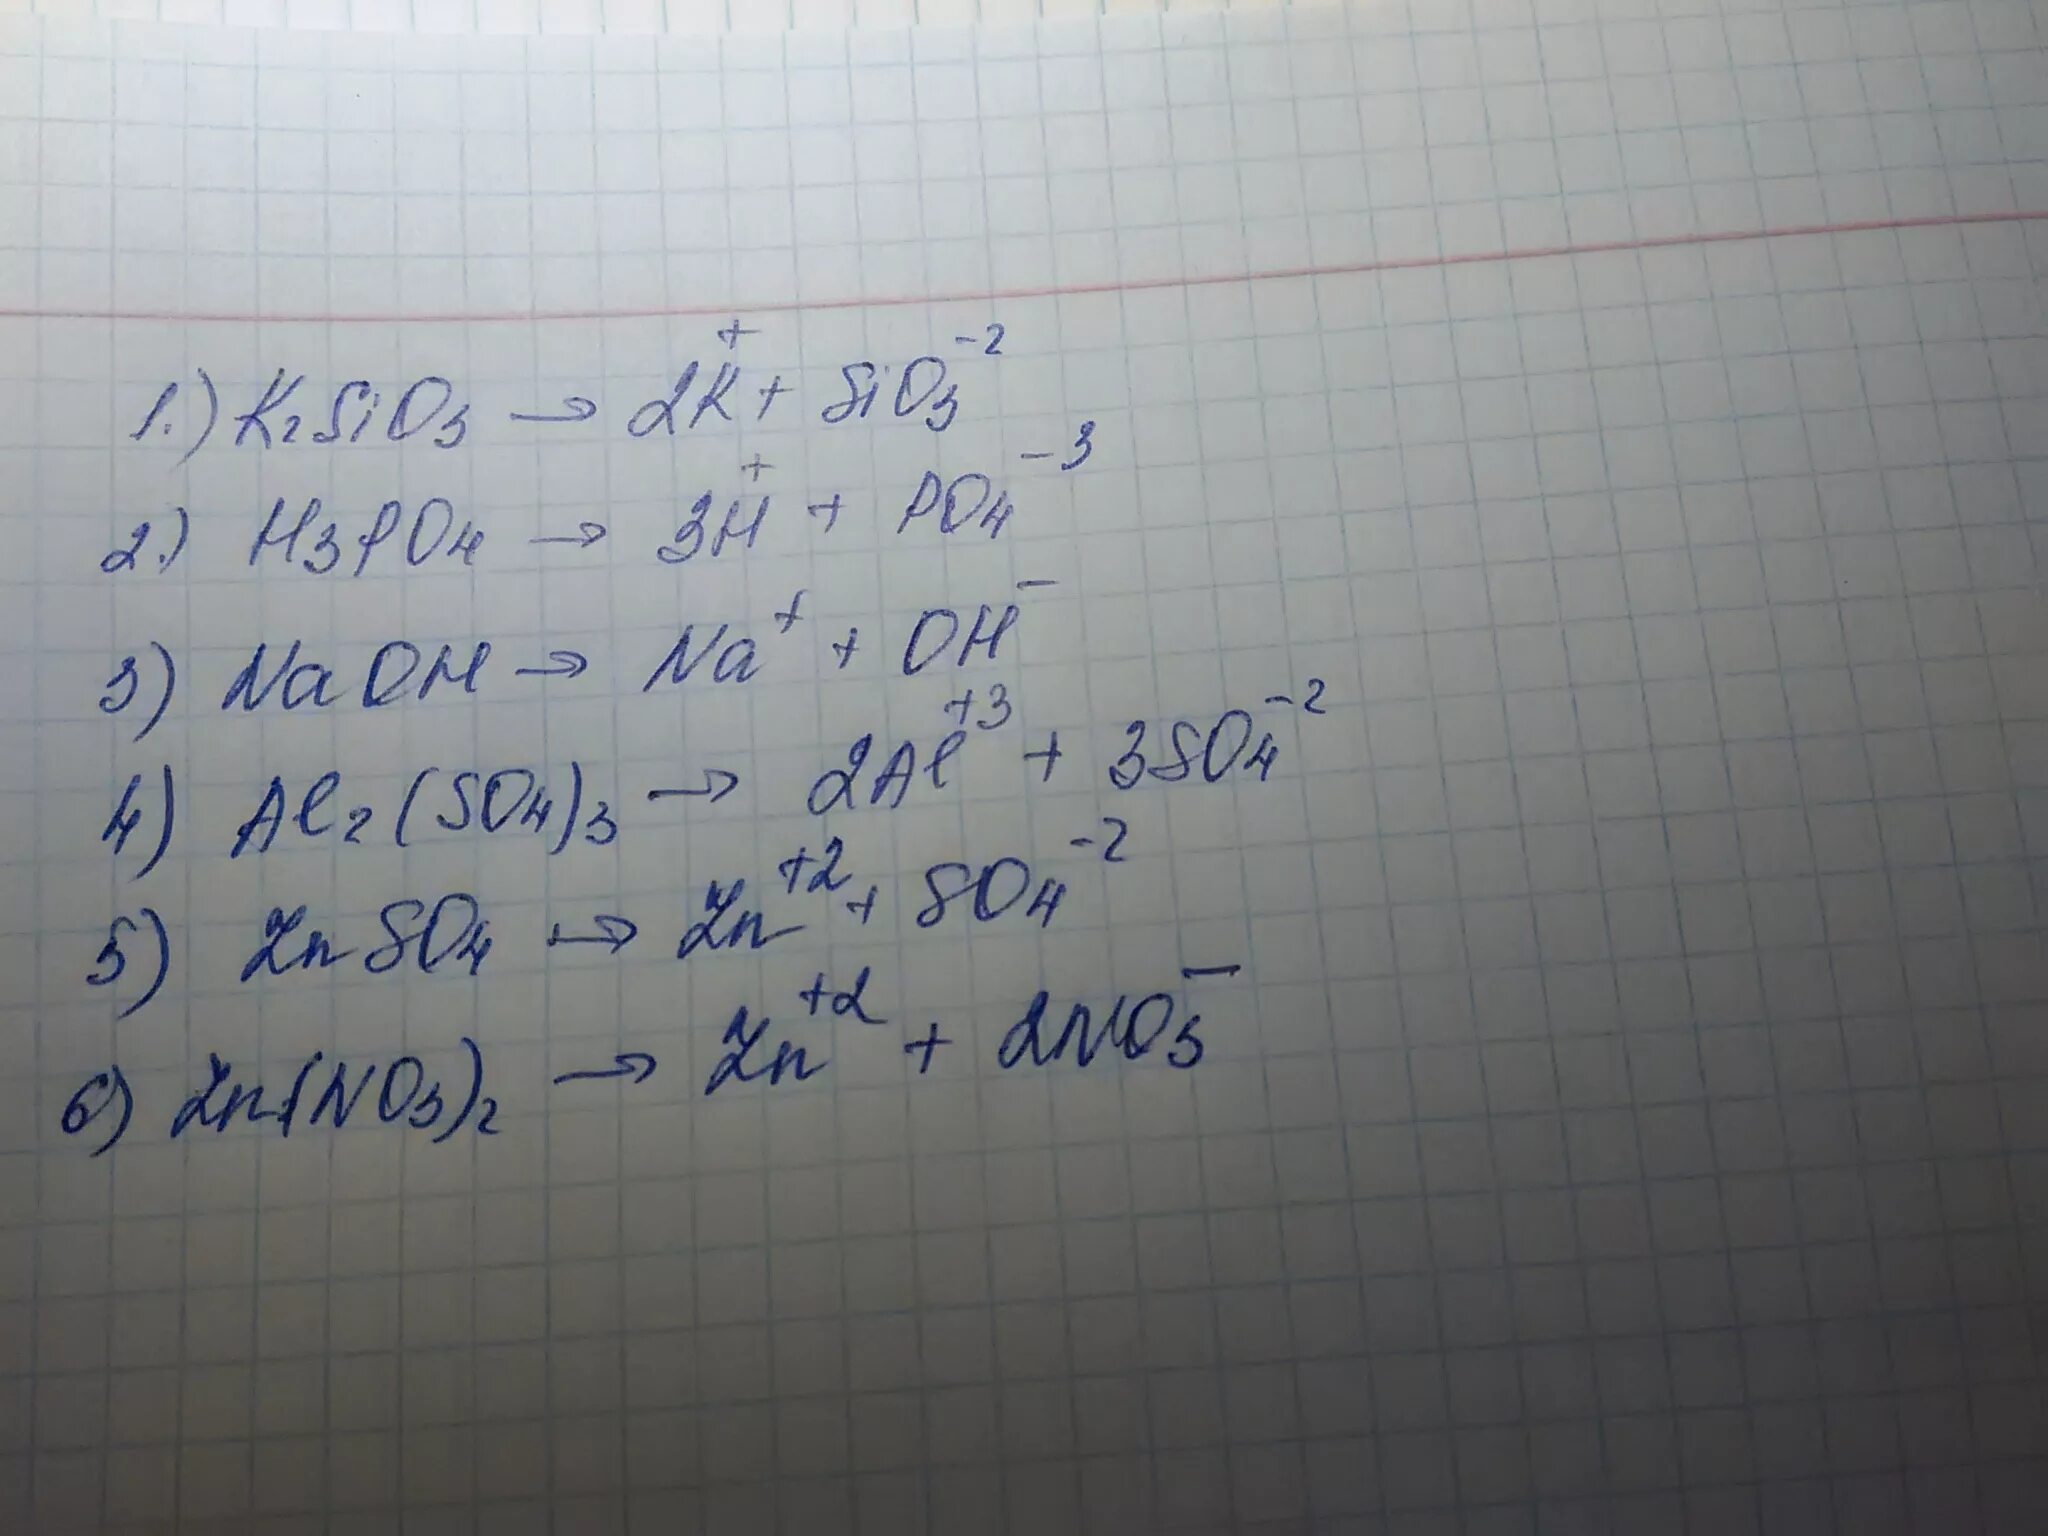 1.) K₂SiO₃ → 2K⁺ + SiO₃⁻²
2.) H₃PO₄ → 3H⁺ + PO₄⁻³
3) NaOH → Na⁺ + OH⁻
4) Al₂(SO₄)₃ → 2Al⁺³ + 3SO₄⁻²
5) ZnSO₄ → Zn⁺² + SO₄⁻²
6) Zn(NO₃)₂ → Zn⁺² + 2NO₃⁻